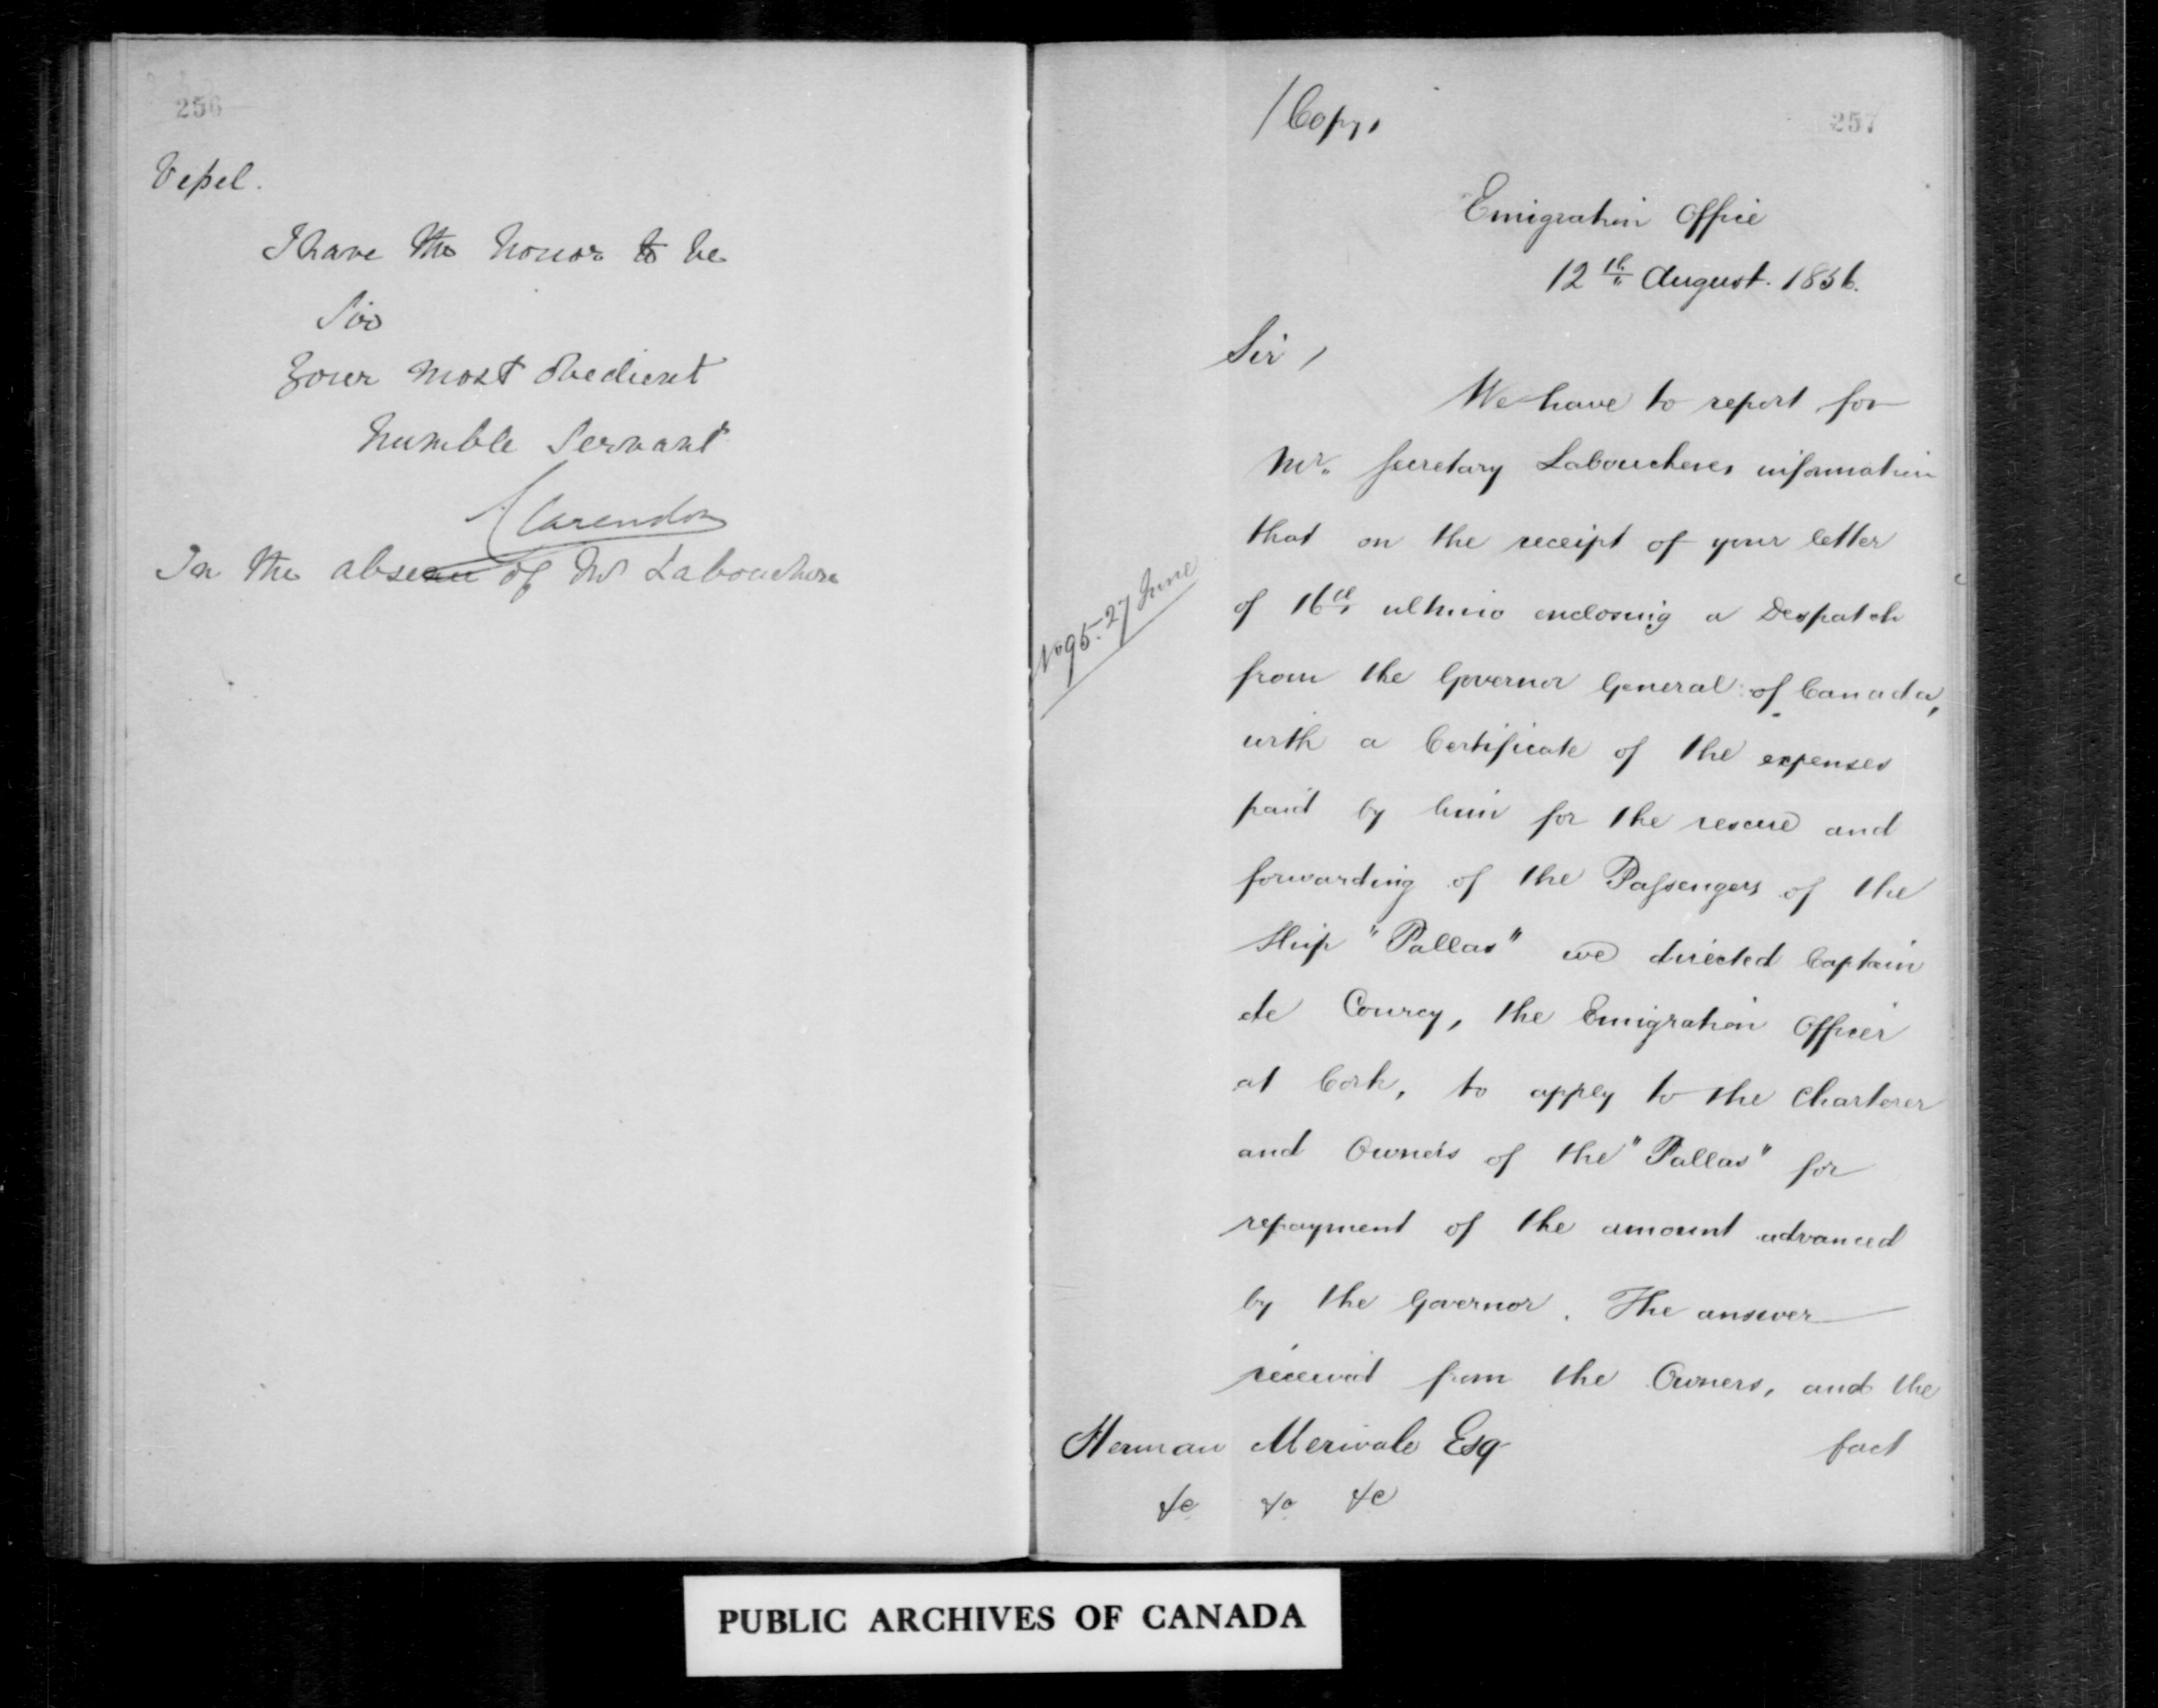 256
Vessel.
I have the honor to be
Sir
Your most obedient
humble Servant
Clarendon
In the absence of Mr Labouchere
/Copy,
257
Emigration Office
12th August. 1856.
Sir,
We have to report for
Mr. Secretary Labouchere's information
that on the receipt of your letter
No 95. 27 June
of 16th ultimo enclosing a Despatch
from the Governor General of Canada,
with a Certificate of the expenses
paid by him for the rescue and
forwarding of the Passengers of the
Ship "Pallas" we directed Captain
de Courcy, the Emigration Officer
at Cork, to apply to the Charterer
and Owners of the "Pallas" for
repayment of the amount advanced
by the Governor. The answer
received from the Owners, and the
fact
Herman Merivale Esq
&c &c &c
PUBLIC ARCHIVES OF CANADA